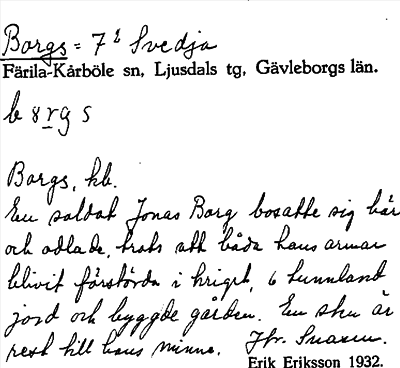 Borgs = 7² Svedja
Färila-Kårböle sn, Ljusdals tg, Gävleborgs län.
b o r g s
Borgs, hb.
En soldat Jonas Borg bosatte sig här
och odlade, trots att båda hans armar
blivit förstörda i kriget, 6 tunnland
jord och byggde gården. En sten är
rest till hans minne.
Erik Eriksson 1932.